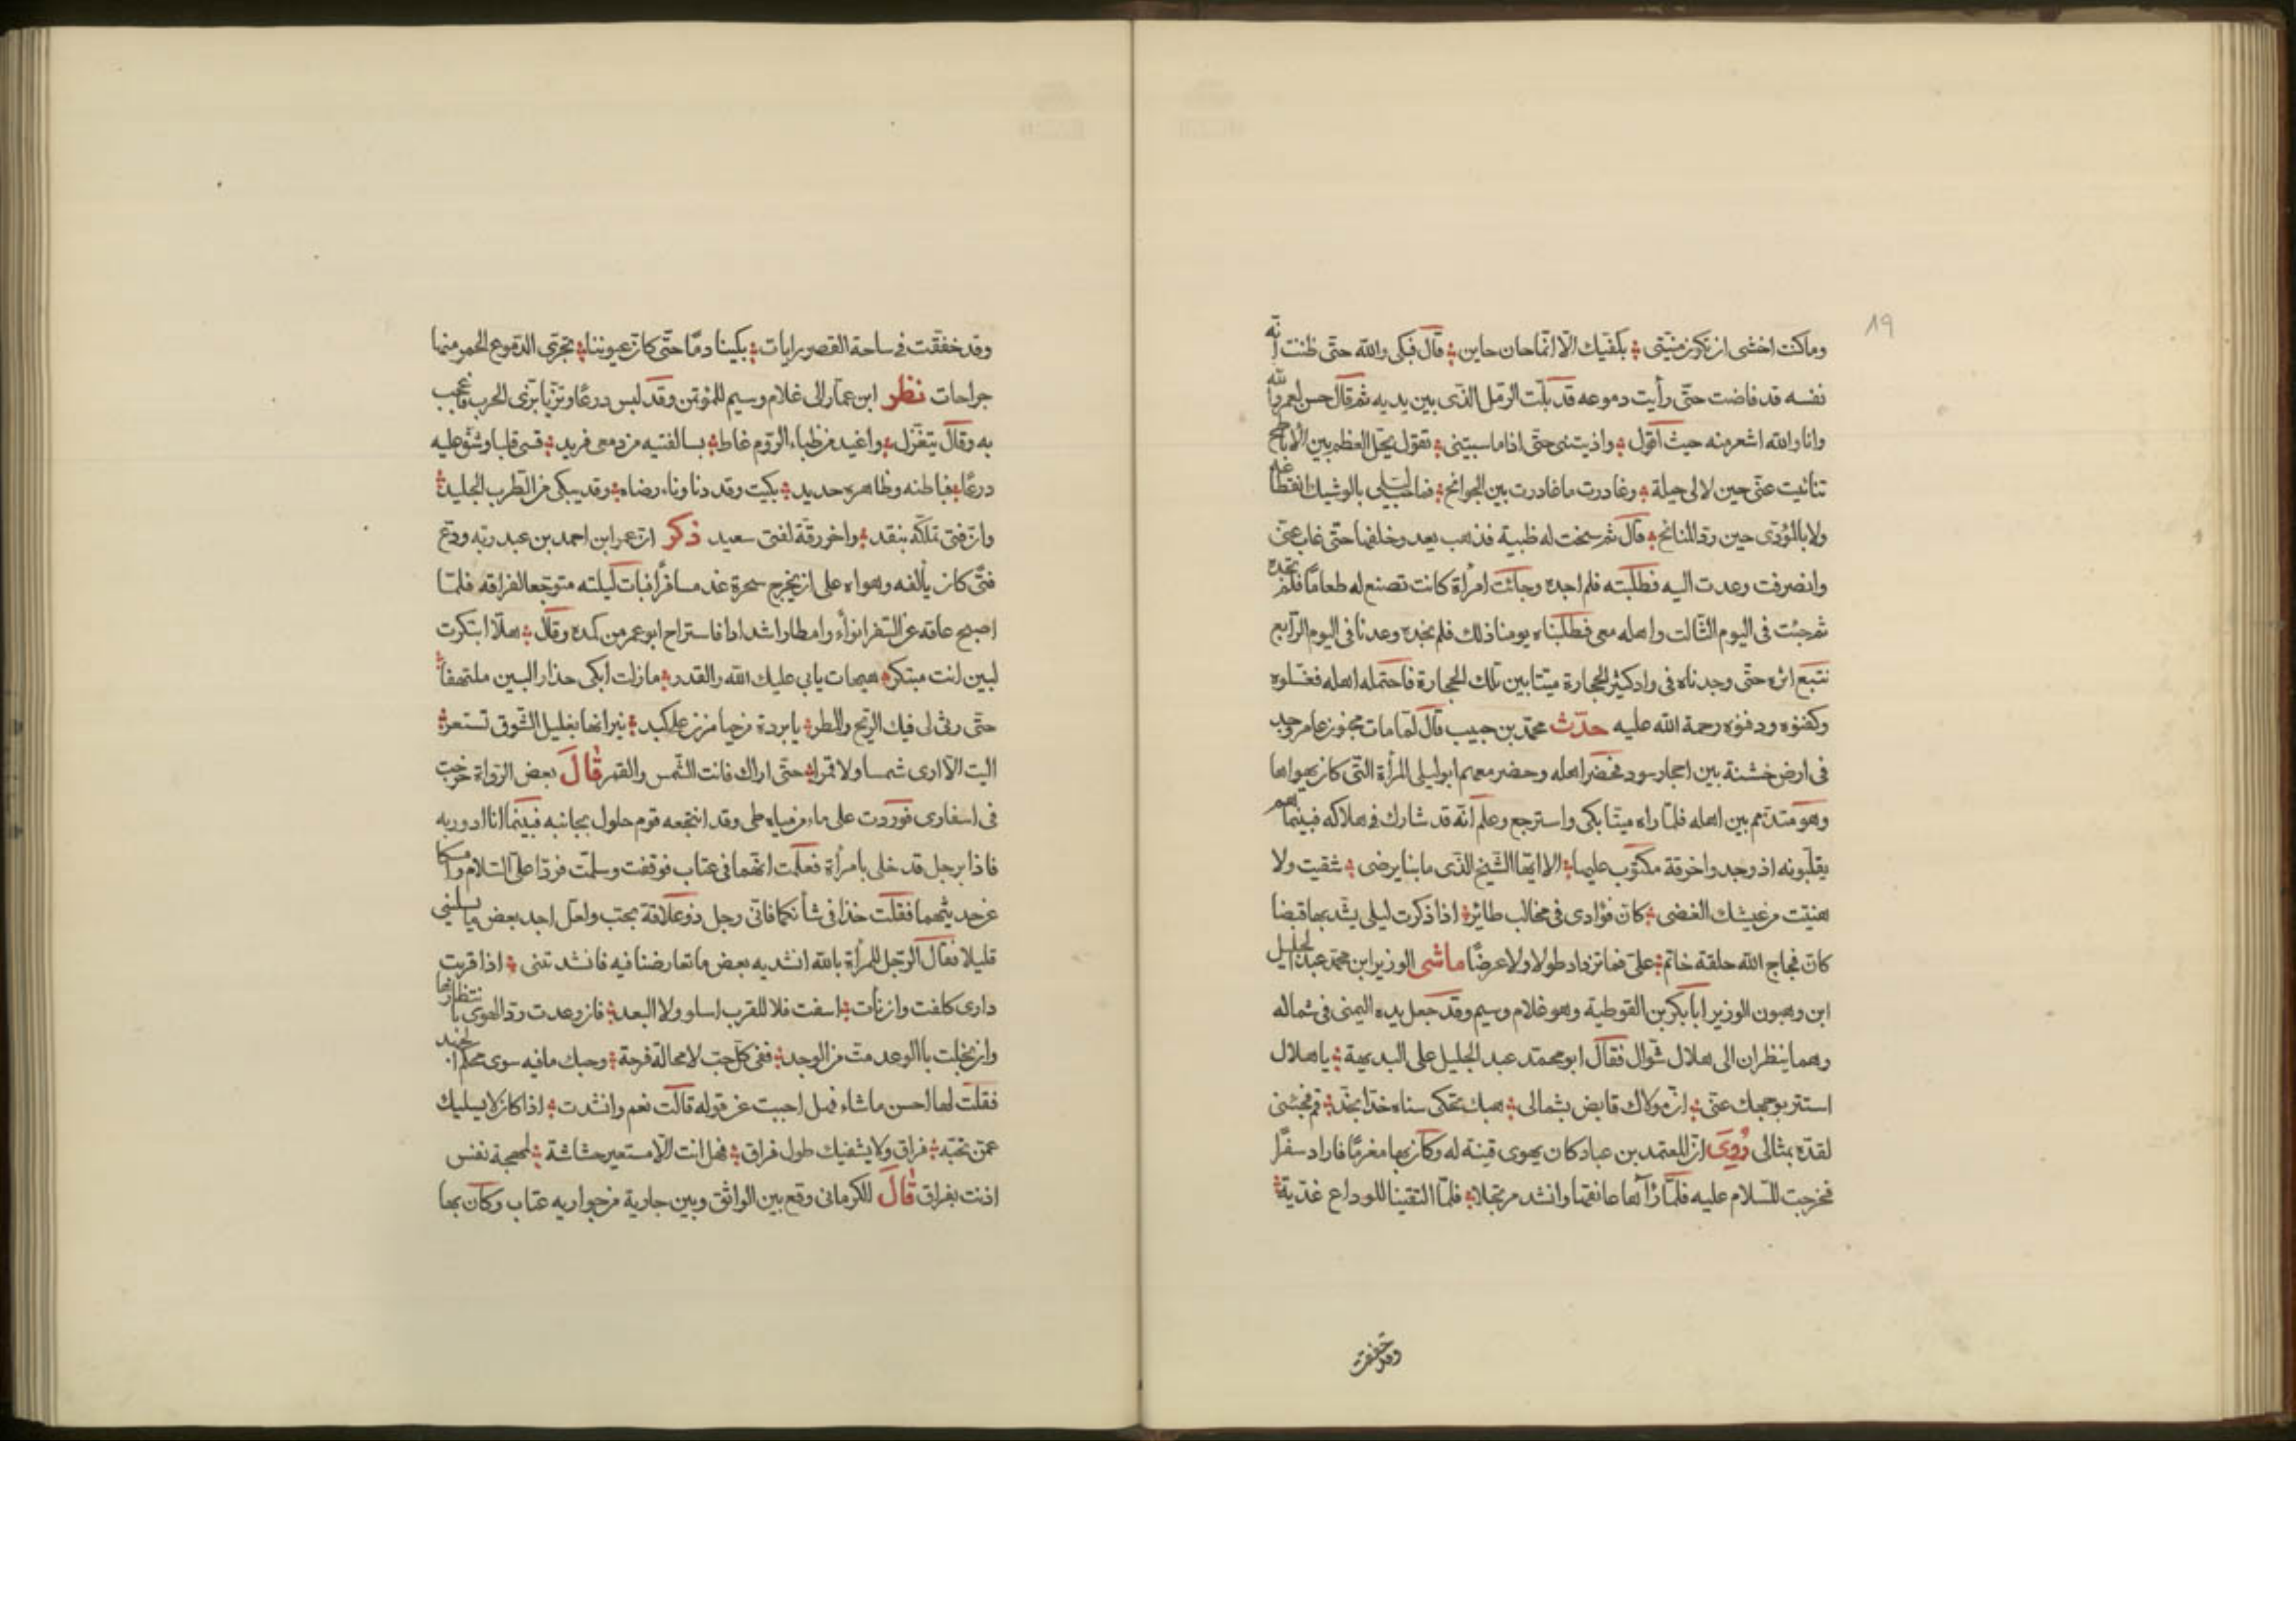 19
وماكنت اخشى ان تكون منيتى بكفيك الا انما حان حاين قال فبكى والله حتى ظننت انه
نفسه قد فاضت حتى رأيت دموعه قد بلت الرمل الذى بين يديه ثم قال حسن لعمر والله
وانا والله اشعر منه حيث اقول واذيتنى حتى اذا ما سبيتنى بقول يحل العظم بين الاباطح
تنائيت عنى حين لا لى حيلة وغادرت ما غادرت بين الجوانح فما حب ليلى بالوشيك انقطاعه
ولا بالمؤدى حين رد المنائح قال ثم سنحت له ظبية فذهب يعد وخلفها حتى غاب عنى
وانصرفت وعدت اليه فطلبته فلم اجده وجائت امرأة كانت تصنع له طعاما فلم تجده
ثم جئت فى اليوم الثالث واهله معى فطلبناه يومنا ذلك فلم نجده وعدنا فى اليوم الرابع
نتبع اثره حتى وجدناه فى واد كثير الحجارة ميتا بين تلك الحجارة فاحتمله اهله فغسلوه
وكفنوه ودفنوه رحمة الله عليه حدث محمد بن حبيب قال لما مات مجنون عامر وجد
فى ارض خشنة بين احجار سود فحضر اهله وحضر معهم ابو ليلى المرأة التى كان يهواها
وهو متذمم بين اهله فلما راه ميتا بكى واسترجع وعلم انه قد شارك فى هلاكه فبينما هم
يقلبونه اذ وجد واخرقة مكتوب عليها الا ايها الشيخ الذى ما بنا يرضى شقيت ولا
هنيت من عيشك الغضى كان فؤادى فى مخالب طائر اذا ذكرت ليلى يشد بها قبضا
كان فجاج الله حلقة خاتم على فما تزداد طولا ولا عرضا ماشى الوزير ابن محمد عبد الجليل
ابن وهبون الوزير ابا بكر بن القوطية وهو غلام وسيم وقد جعل يده اليمنى فى شماله
وهما ينظران الى هلال شوال فقال ابو محمد عبد الجليل على البديهة يا هلال
استتر بوجهك عنى ان مولاك قابض بشمالى هبك تحكى سناه خدا بخد قم فجئنى
لقده بمثالى روى ان المعتمد بن عباد كان يهوى قينة له وكان بها مغرما فاراد سفرا
فخرجت للسلام عليه فلما رآها عانقها وانشد مرتجلا فلما التقينا للوداع غدية
وقد خفقت
وقد خفقت فى ساحة القصر رايات بكينا دما حتى كان عيوننا تجرى الدموع الحمر منها
جراحات نظر ابن عمار الى غلام وسيم للمؤتمن وقد لبس درعا وتزيا بزى الحرب فاعجب
به وقال يتغزل واغيد من ظباء الروم عاط بسالفتيه من دمعى فريد قسى قلبا وشق عليه
درعا فباطنه وظاهره حديد بكيت وقد دنا وناء رضاه وقد يبكى من الطرب الجليد
وان فتى تملكه بنقد واحرز رقه لفتى سعيد ذكر ان عمر ابن احمد بن عبد ربه ودع
فتى كان يألفه ويهواه على ان يخرج سحرة غد مسافرا فبات ليلته متوجعا لفراقه فلما
اصبح عاقه عن السفر انواء وامطار اشدادا فاستراح ابو عمر من كمده وقال هلا ابتكرت
لبين انت مبتكر هيهات يابى عليك الله والقدر مازلت ابكى حذار البين ملتهفا
حتى رثى لى فيك الريح والمطر يا برده من حيا مزن على كبد نيرانها بغليل الشوق تستعر
اليت الا ارى شمسا ولا قمرا حتى اراك فانت الشمس والقمر قال بعض الرواة خرجت
فى اسفارى فوردت على ماء من مياه طى وقد انتجعه قوم حلول بجانبه فبينما انا ادور به
فاذا برجل قد خلى بامرأة فعلمت انهما فى عتاب فوقفت وسلمت فردا على السلام وامسكا
عن حديثهما فقلت خذا فى شأنكما فانى رجل ذو علاقة بحب ولعل اجد بعض ما يسلينى
قليلا فقال الرجل للمرأة بالله انشديه بعض ما تعارضنا فيه فانشدتنى اذا قربت
دارى كلفت وان نأت اسفت فلا للقرب اسلو ولا البعد فان وعدت زد الهوى بانتظارها
وان بخلت باالوعد مت من الوجد ففى كل حب لا محالة فرحة وحبك ما فيه سوى محكم الجهد
فقلت لها احسن ما شاء فهل اجبت عن قوله قالت نعم وانشدت اذا كان لا يسليك
عمن تحبه فراق ولا يشفيك طول فراق فهل انت الا مستعير حشاشة لمهجة نفس
اذنت بفراق قال الكرمانى وقع بين الواثق وبين جارية من جواريه عتاب وكان بها